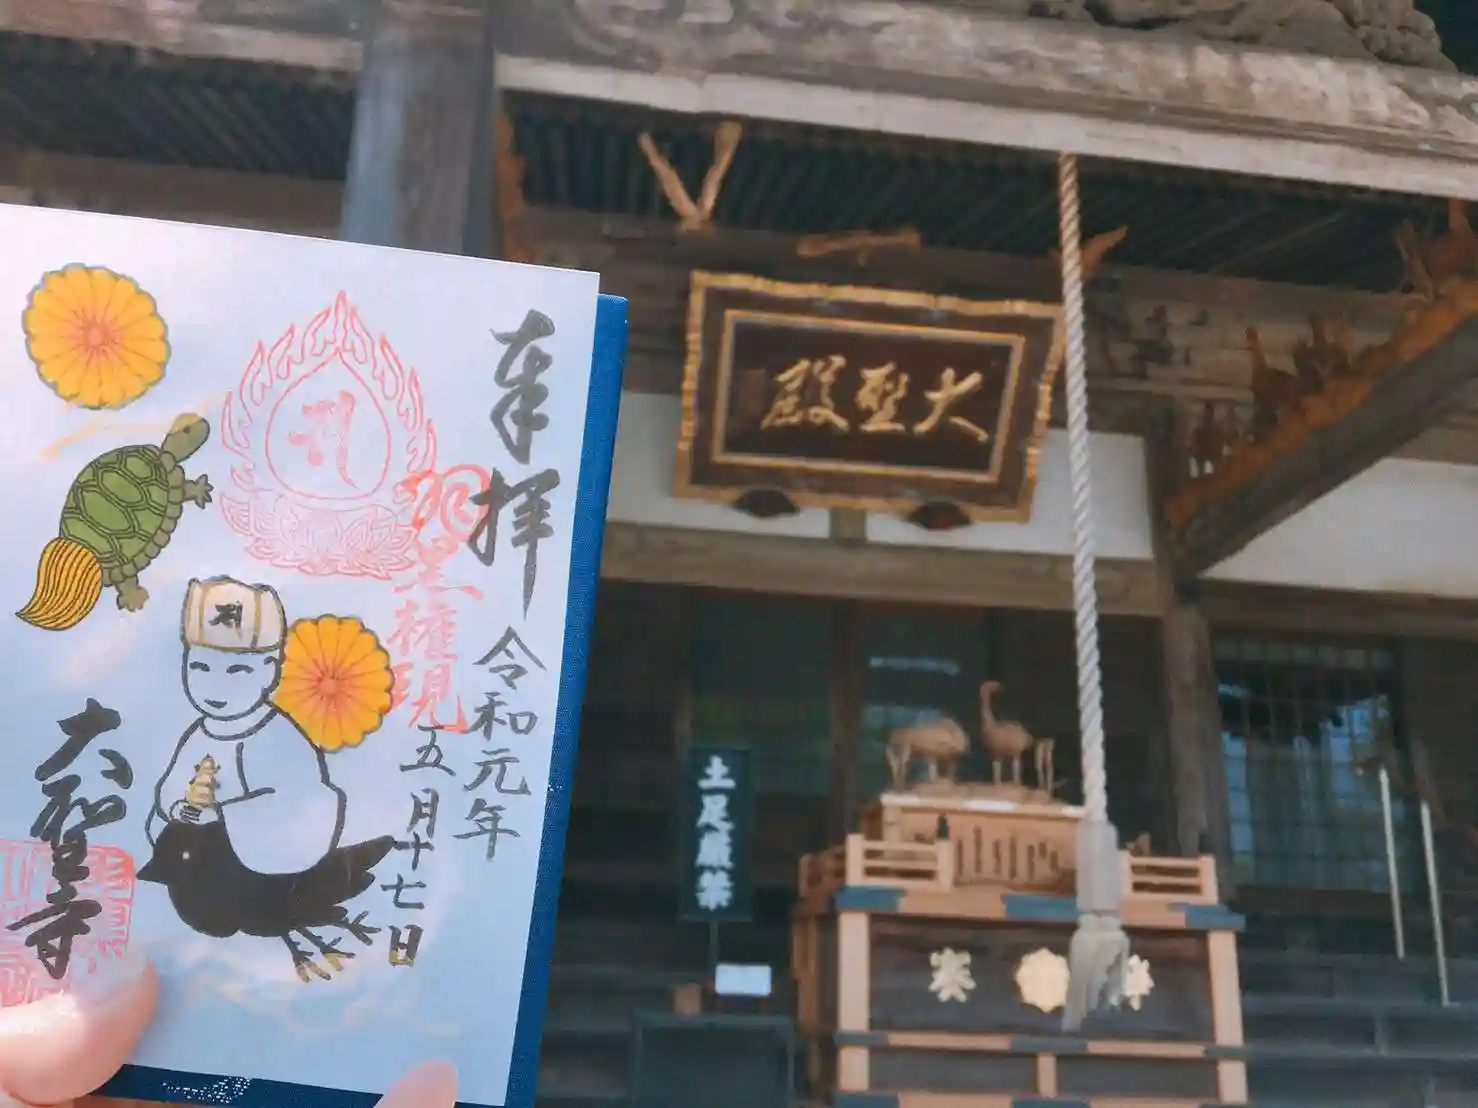 奉拝
羽黒権現
令和元年
五月十七日
大聖寺
大聖殿
土足厳禁
奉